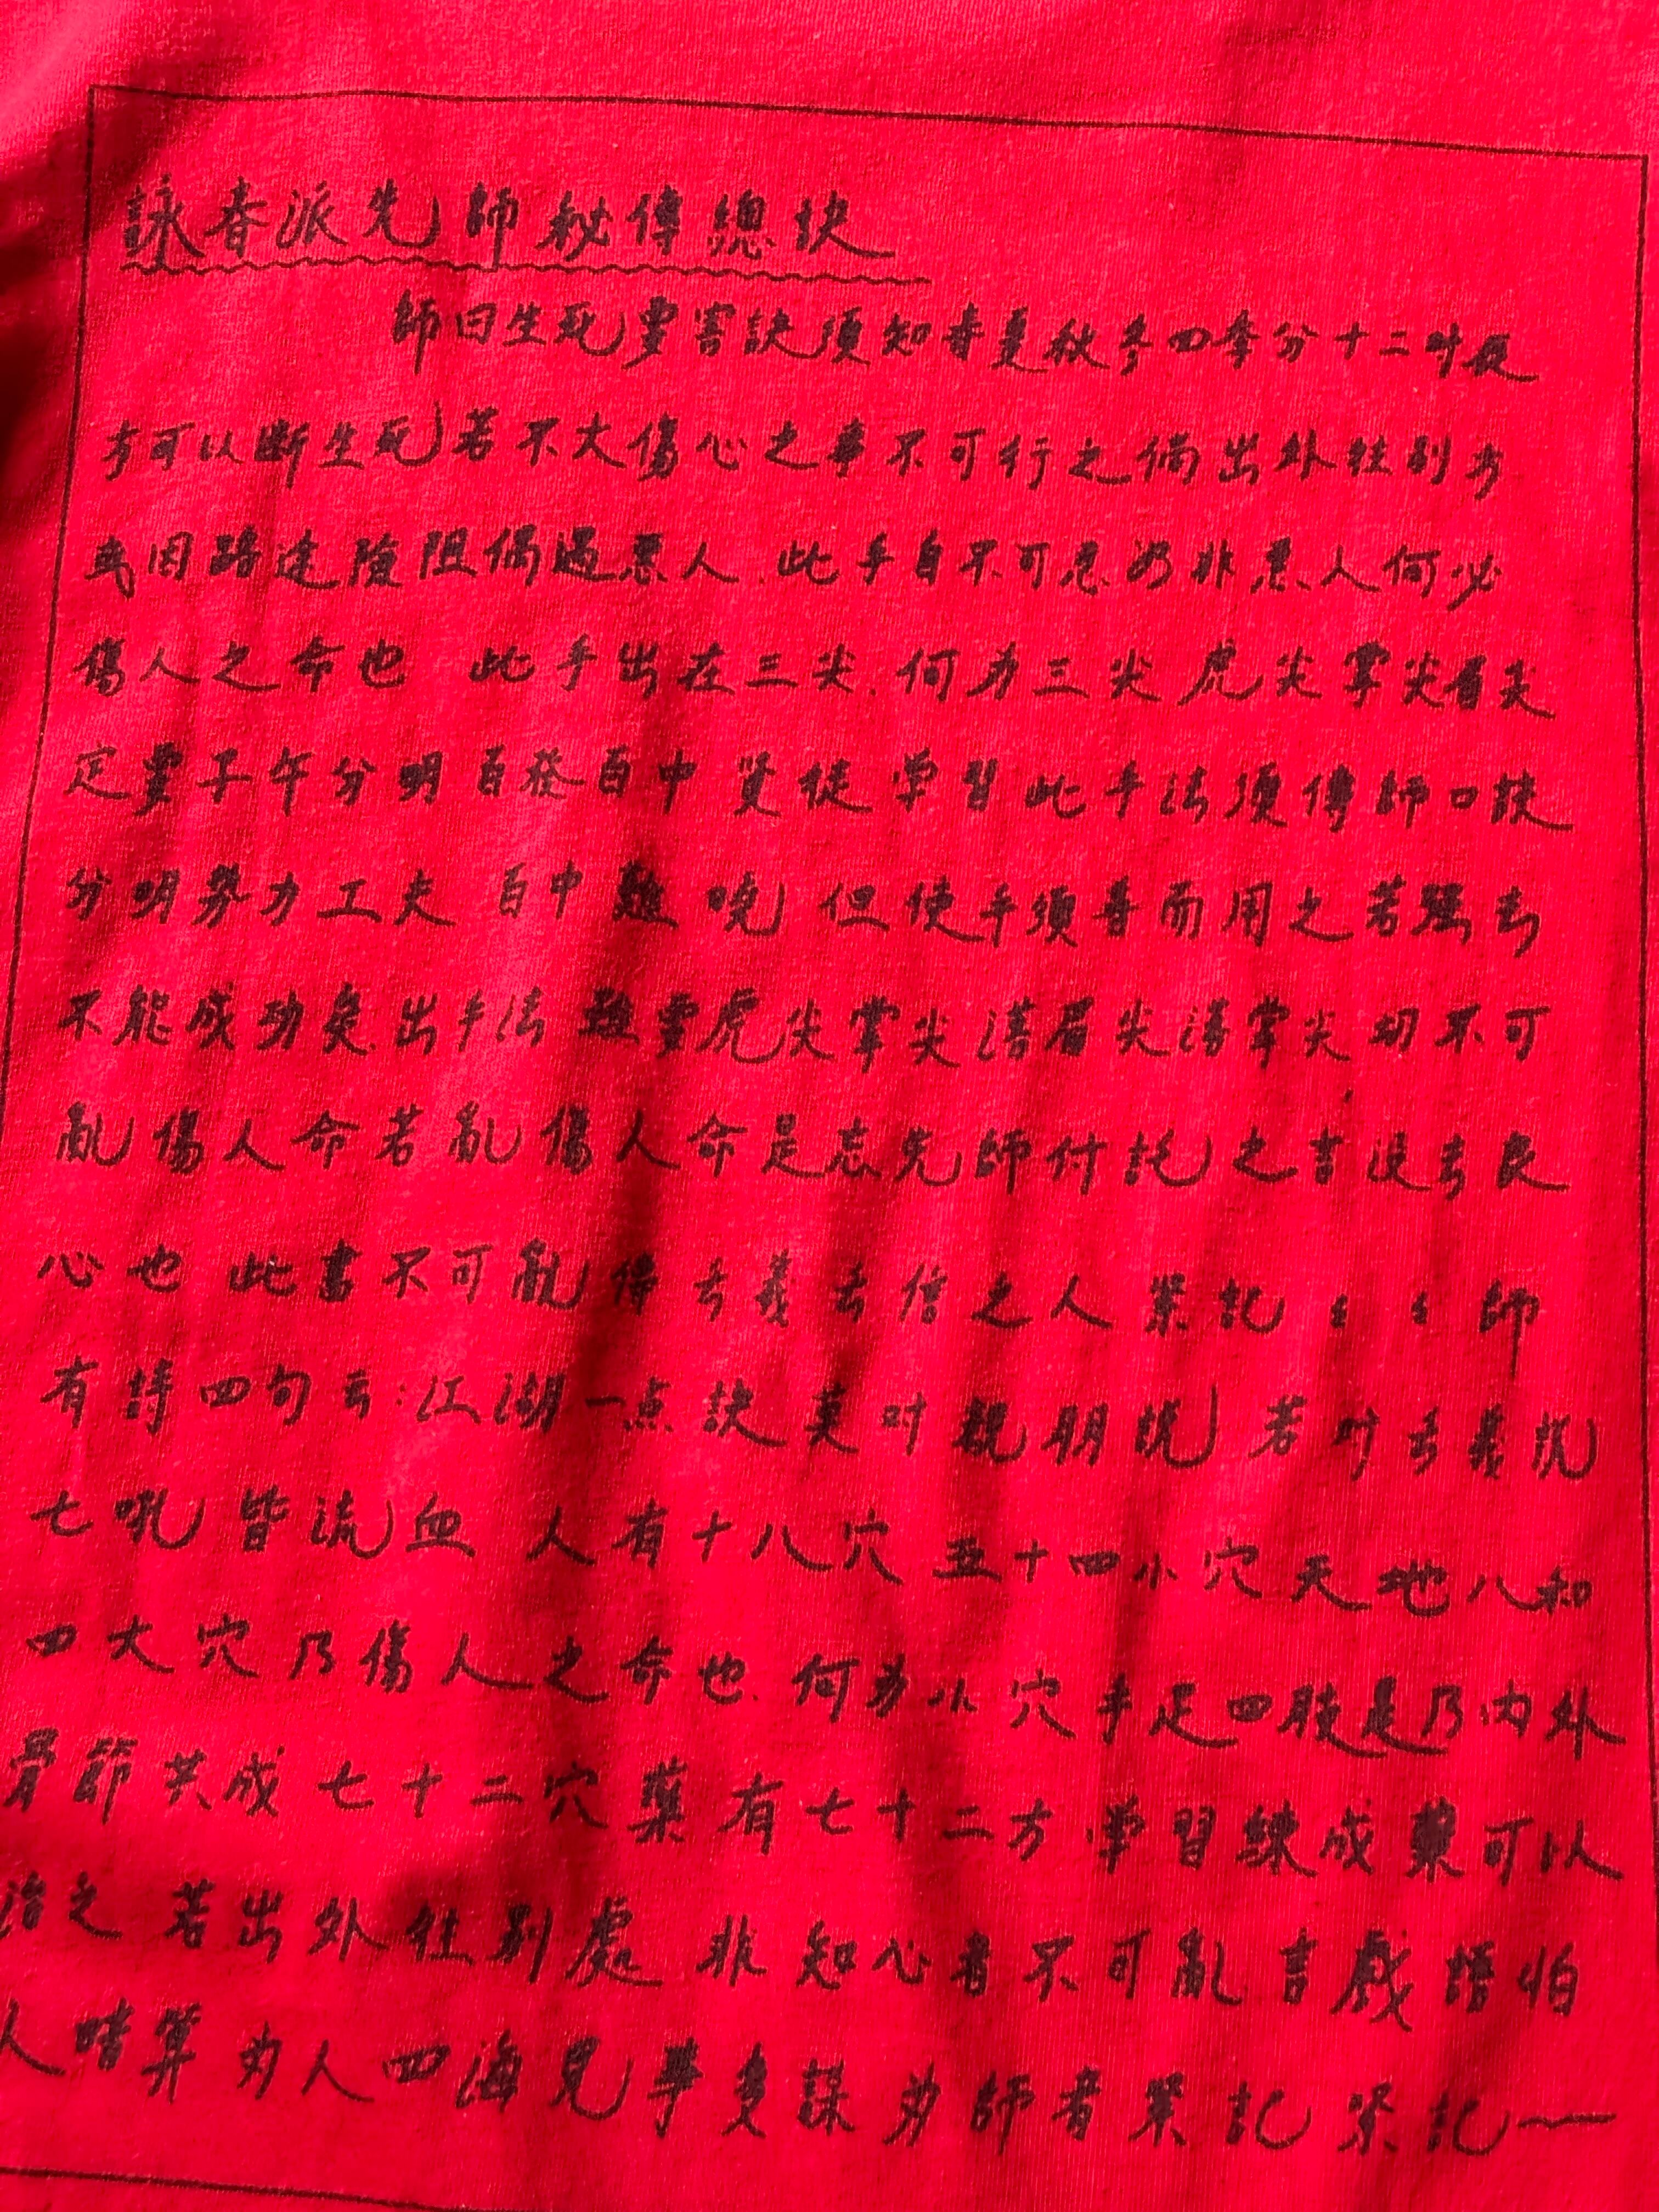 詠春派先師秘傳總訣
師曰生死要害訣須知春夏秋冬四季分十二时辰
方可以断生死若不大傷心之事不可行之倘出外往别方
或因路途險阻偶遇恶人.此手自不可忍乃非恶人何必
傷人之命也 此手出在三尖.何为三尖 虎尖掌尖眉尖
定要子午分明百發百中 贤徒学習此手法須傳師口訣
分明努力工夫 百中 曉 但使手須善而用之若 去
不能成功矣.出手法 要虎尖掌尖 眉尖 掌尖切不可
亂傷人命若亂傷人命是忘先師付託之言没去良
心也 此書不可亂傳去義去信之人 紧記 師
有詩四句云:江湖一点訣莫对親朋説 若对去義説
七吼皆流血 人有十八穴 五十四小穴天地人和
四大穴乃傷人之命也.何为小穴手足四肢是乃内外
骨節共成七十二穴藥有七十二方 学習練成藥可以
治之 若出外往别處 非知心者不可亂言戲語怕
人暗算为人四海見事多謀为師者紧記紧記